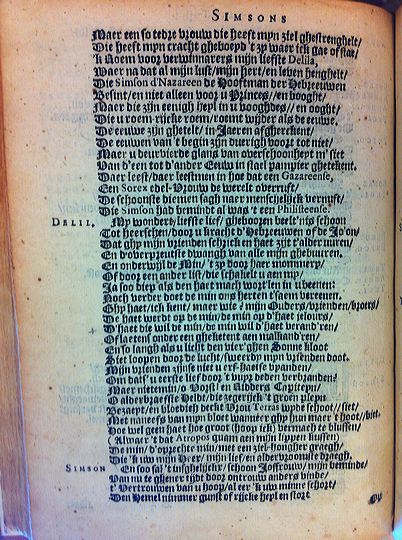 SIMSONS
Maer een so tedre vrouw die heeft mijn ziel ghestrenghelt/
Die heeft mijn cracht gheboeyd 't zy waer ick gae of stae/
'k Noem voor verwinnarers mijn liefste Delila,
Waer na dat al mijn lust/mijn hert/en leven henghelt/
Die Simson d'Nazareen de Hooftman der Hebreeuwen
Besint/en niet alleen voor u Princes//en booght/
Maer die zijn eenigh heyl in u ooghdes//en ooght/
Die u roem rijcke roem/roemt wijder als de eeuwe.
De eeuwe zijn ghetelt/in Jaeren afgherekent/
De eeuwen van 't begin zijn duerigh voort tot niet/
Maer u deurvierde glans van overschoonheyt m' siet
Van d'een tot d'ander Eeuw in stael pampier ghetekent.
Daer leest/daer leestmen in hoe dat een Gazareense,
Een Sorex edel-Vrouw de werelt overtuft/
De schoonste diemen sagh naer menschelijck vernuft/
Die Simson had bemindt al was 't een Philisteense.
DELIL. Mijn wonders/liefste lief/ghebooren veelt'nis schoon
Tot heerschen/door u kracht d'Hebreeuwen of de Jo'on/
Dat ghy mijn vrienden schrick en haet zijt t'alder uuren/
En d'overpreutste dwangh van alle mijn ghebuiren.
En onderwijl de Min/'t zy door haer mommery/
Of door een ander list/die schakelt u aen my/
Ja soo diep als den haet mach wort'len in u beenen:
Noch verder doet de min ons herten t'saem vereenen.
Ghy haet/ick kent/maer wie? mijn Ouders/vrienden/broers/
De haet werdt op de min/de min op d'haet jelours/
D'haet die wil de min/de min wil d'haet verand'ren/
Of laetens onder een gheketent aen malkand'ren/
En so langh als u licht den vier'ghen Sonne kloot
Siet loopen door de lucht/sweerdy mijn vrienden doot.
Mijn vrienden zijnse niet u erf-haetse vyanden/
Om dat s' u eerste lief door 't huys deden verbranden?
Maer nietemin/o Vorst! en Ridders Capiteyn/
O alderbraefste Heldt/die zegerijck 't groen pleyn
Bezaeyt/en bloedich verckt Vrou Terras wyde schoot//siet/
Met naneefs van mijn bloet wanneer ghy hun maer t'hoot//biet.
Hoe wel geen haet hoe groot (hoop ick) vermach te blussen/
(Al waer 't dat Atropos quam aen mijn lippen kussen)
De min/d'oprechte min/met een ziel-hongher graegh/
Die 'k uw mijn Heer/mijn lief/en alderbroomste draegh.
SIMSON En soo sal 't insghelijckx/schoon Joffrouw/mijn beminde/
Van nu te ghener tijdt door ontrouw anders vinde
't Vertrouwen van u hoop/al eer 'k uw minne schort/
Den Hemel nimmer gunst of rijcke heyl en stort